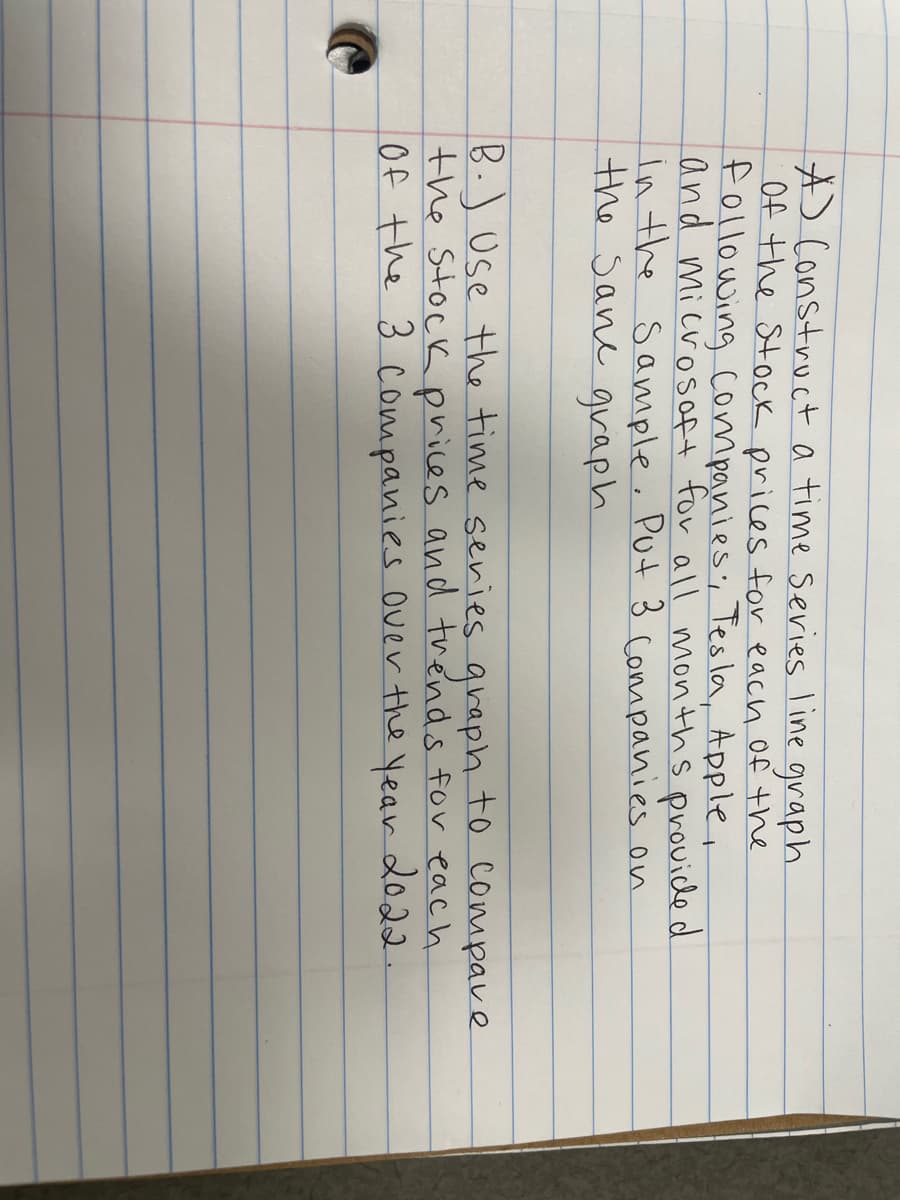 A) Construct a time series line graph
of the stock prices for each of the
following companies; Tesla, Apple,
and microsoft for all months provided
in the sample. Put 3 companies on
the sane graph
B.) Use the time series graph to compare
the stock prices and trends for each
of the 3 companies over the year 2022.